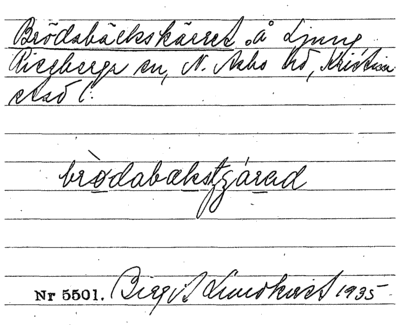 Brödabäckskärret, å Ljung
Riseberga sn, N. Åsbo hd, Kristian
stad l.
bròdabækstjárəd
Nr 5501. Birgit Lundkvist 1935